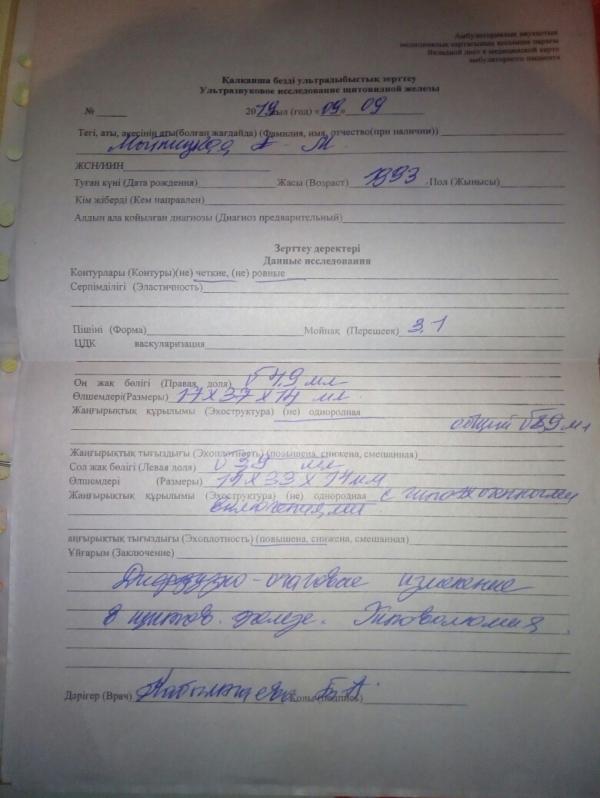 Амбулаториялық науқастың
медициналық картасының қосымша парағы
Вкладной лист к медицинской карте
амбулаторного пациента
Қалқанша безді ультрадыбыстық зерттеу
Ультразвуковое исследование щитовидной железы
№ ______ 2019 жыл (год) «09» 09
Тегі, аты, әкесінің аты(болған жағдайда) (Фамилия, имя, отчество(при наличии))
ЖСН/ИИН
Туған күні (Дата рождения) Жасы (Возраст) 1993 Пол (Жынысы)
Кім жіберді (Кем направлен)
Алдын ала қойылған диагнозы (Диагноз предварительный)
Зерттеу деректері
Данные исследования
Контурлары (Контуры)(не) четкие, (не) ровные
Серпімділігі (Эластичность)
Пішіні (Форма) Мойнақ (Перешеек) 3,1
ЦДК васкуляризация
Оң жақ бөлігі (Правая доля) V 4,9 мл
Өлшемдері(Размеры) 17х37х14 мл.
Жаңғырықтық құрылымы (Эхоструктура) (не) однородная
общий V 8,9 мл
Жаңғырықтық тығыздығы (Эхоплотность) (повышена, снижена, смешанная)
Сол жақ бөлігі (Левая доля) V 3,9 мл
Өлшемдері (Размеры) 17х33х14мл
Жаңғырықтық құрылымы (Эхоструктура) (не) однородная с гипоэхогенными
включениями
аңғырықтық тығыздығы (Эхоплотность) (повышена, снижена, смешанная)
Ұйғарым (Заключение)
Диффузно-очаговое изменение
в щитов. железе. Гиповолюмия.
Дәрігер (Врач) Б А Қолы (подпись)